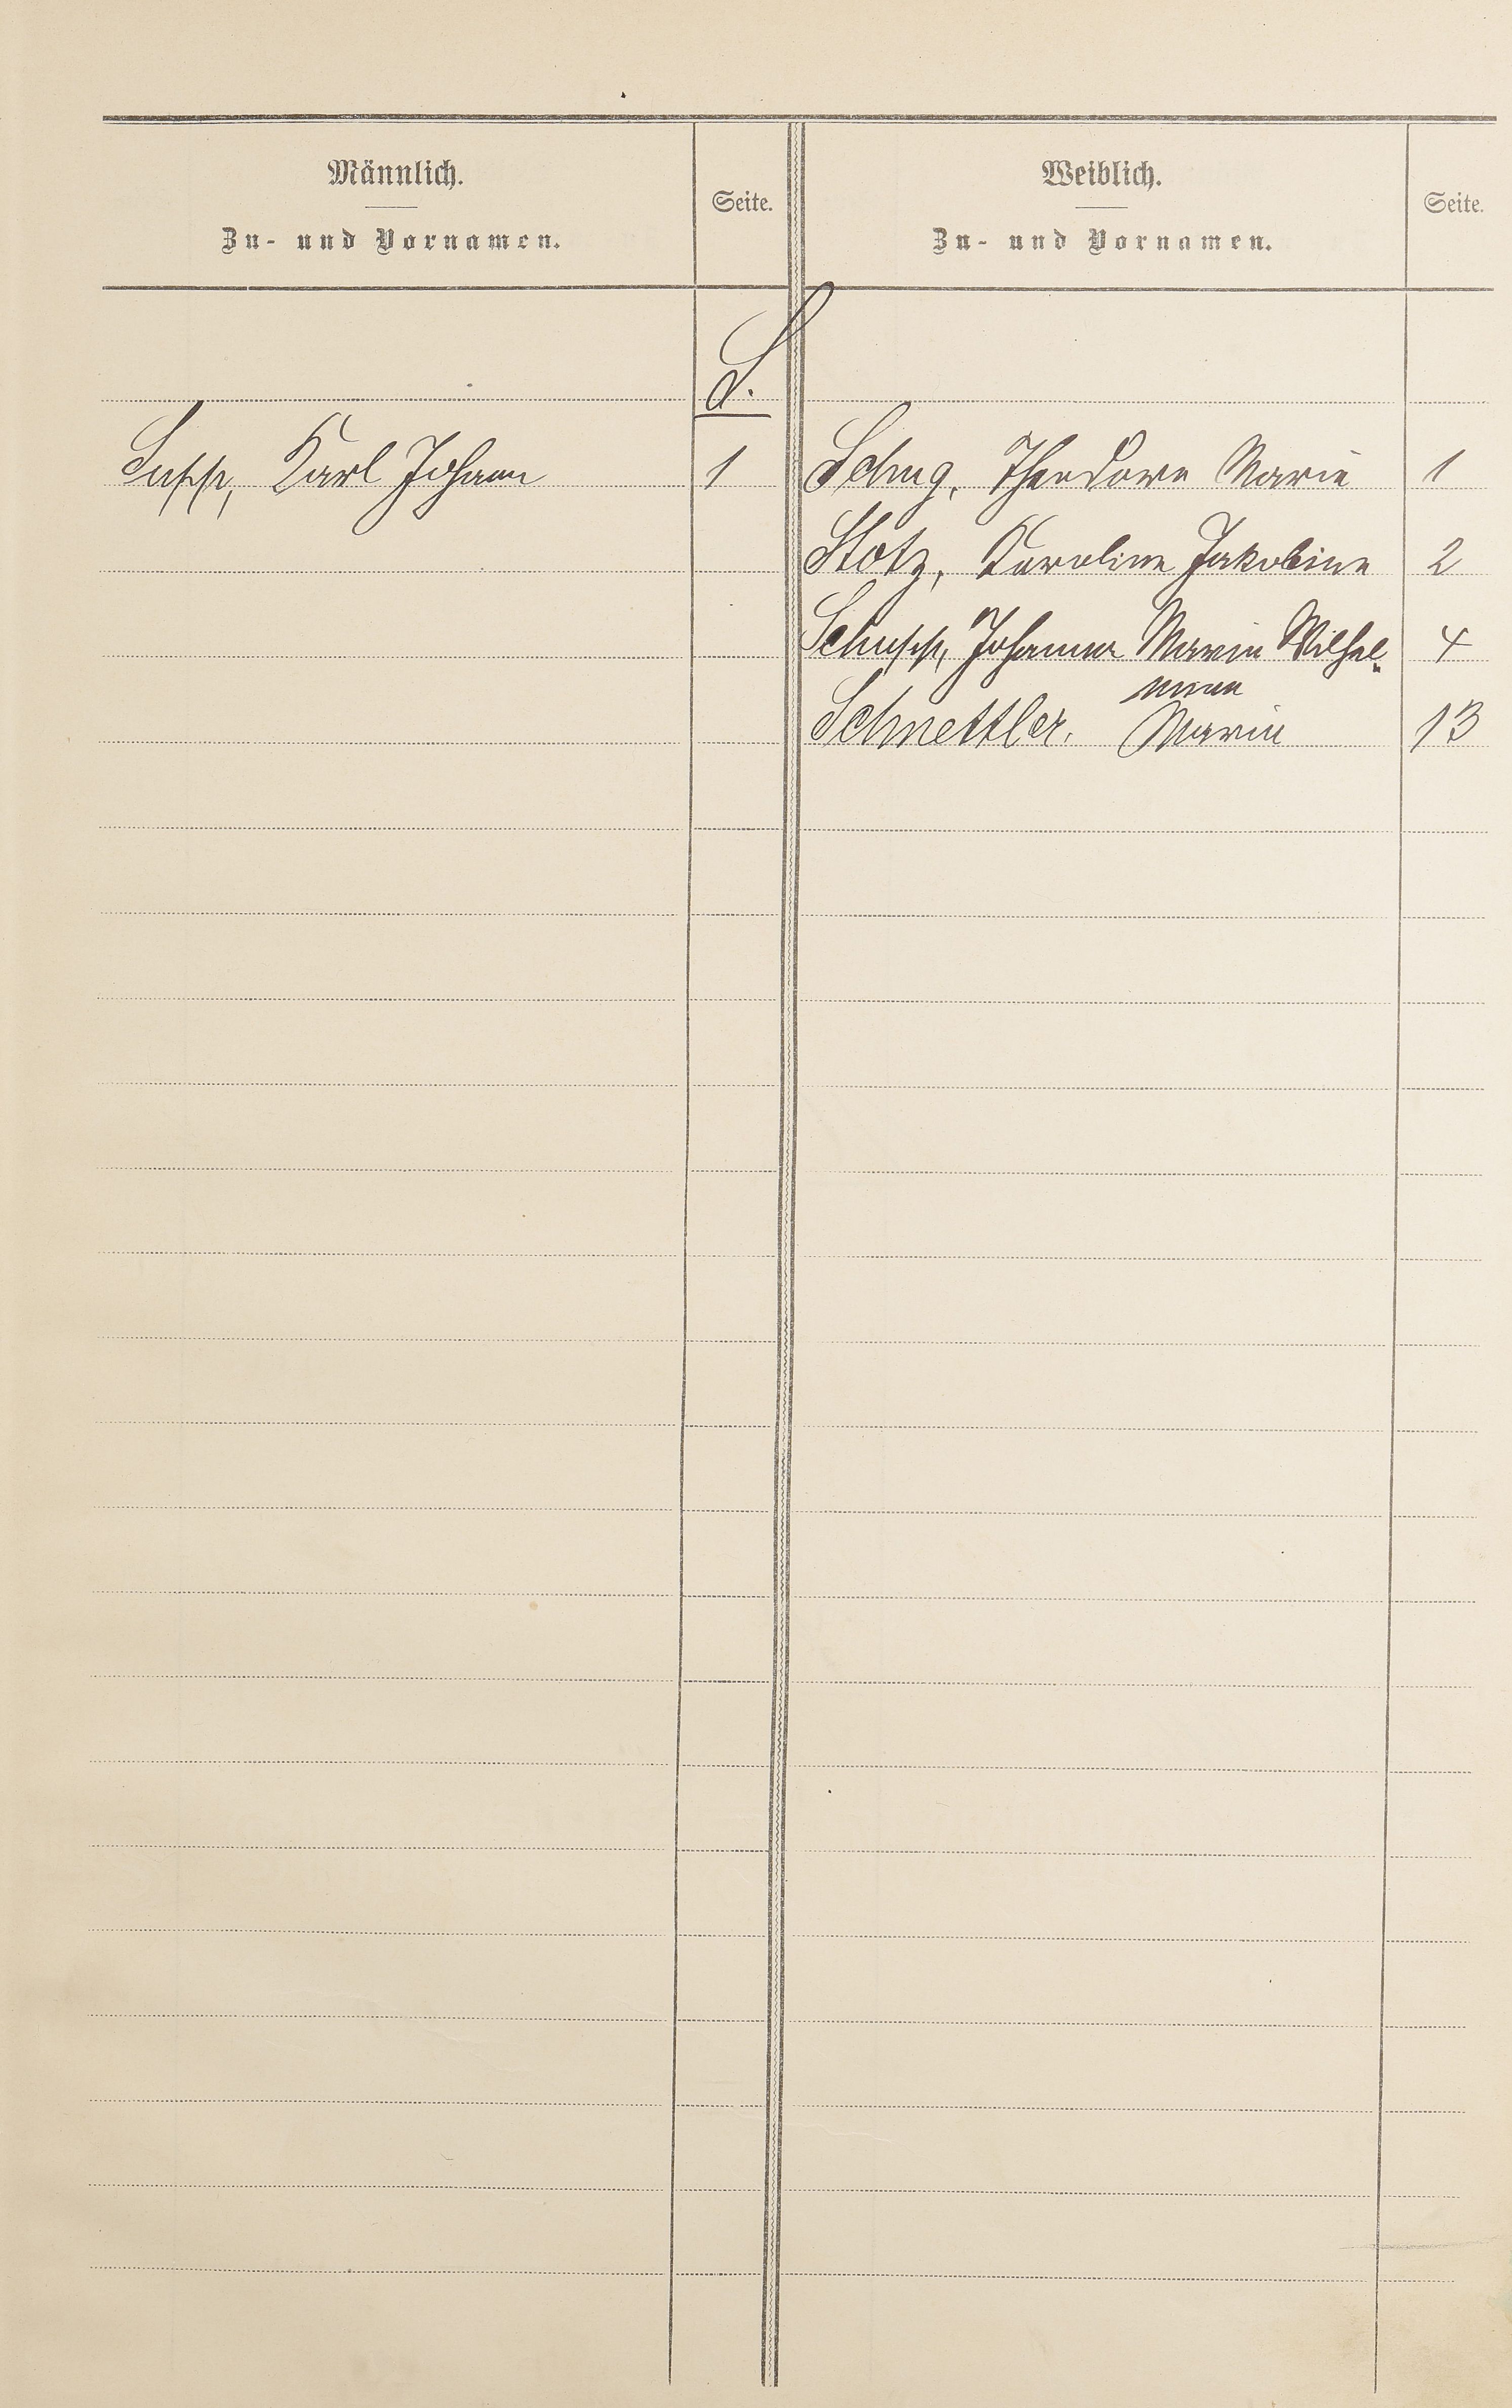 Männlich.
Zu- und Vornamen.
Seite.
Weiblich.
Zu- und Vornamen.
Seite.
S.
Supp, Karl Johann 1
Schug, Theodore Marie 1
Stotz, Karoline Jakobine 2
Schupp, Johanna Marie Wilhel-
mine 4
Schnettler, Marie 13